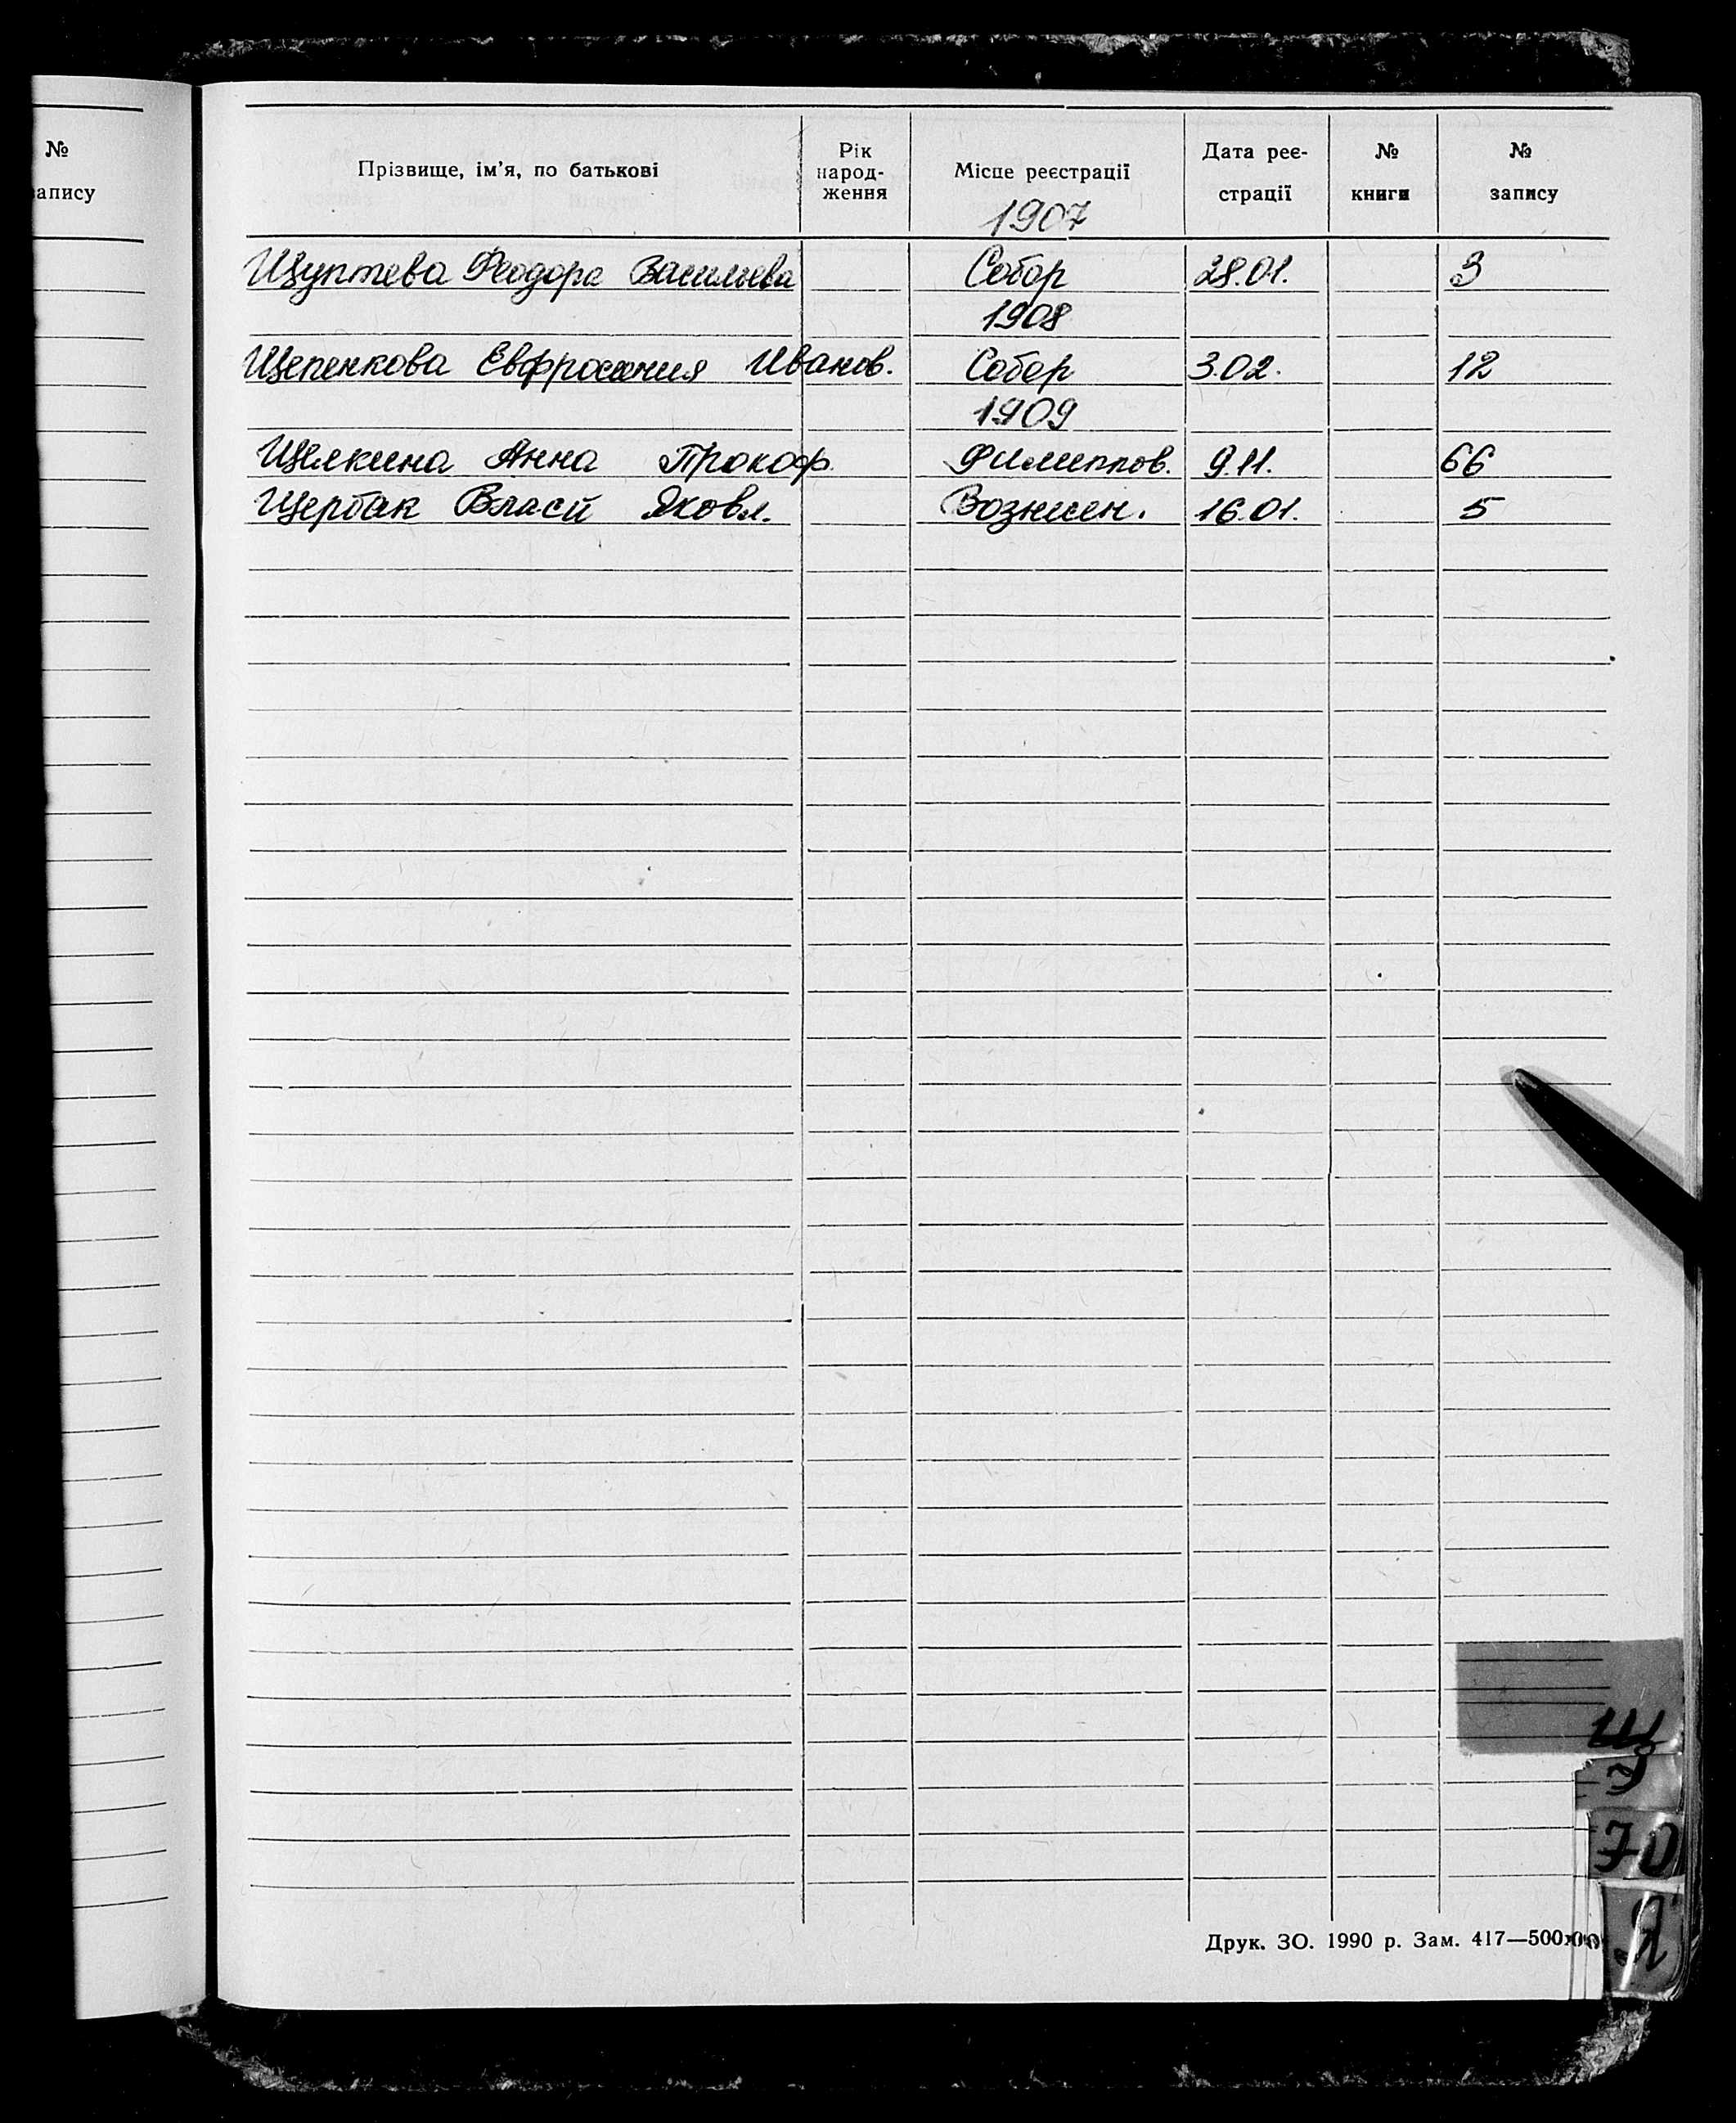 №
запису
Прізвище, ім'я, по батькові
Рік народ-ження
Місце реєстрації
Дата реє-страції
№ книги
№ запису
1907
Щуптева Феодора Васильева Собор 28.01. 3
1908
Щепенкова Евфросиния Иванов. Собор 3.02. 12
1909
Щелкина Анна Прокоф. Филиппов. 9.11. 66
Щербак Власий Яковл. Вознесен. 16.01. 5
Щ
Э
Ю
Я
Друк. ЗО. 1990 р. Зам. 417—500